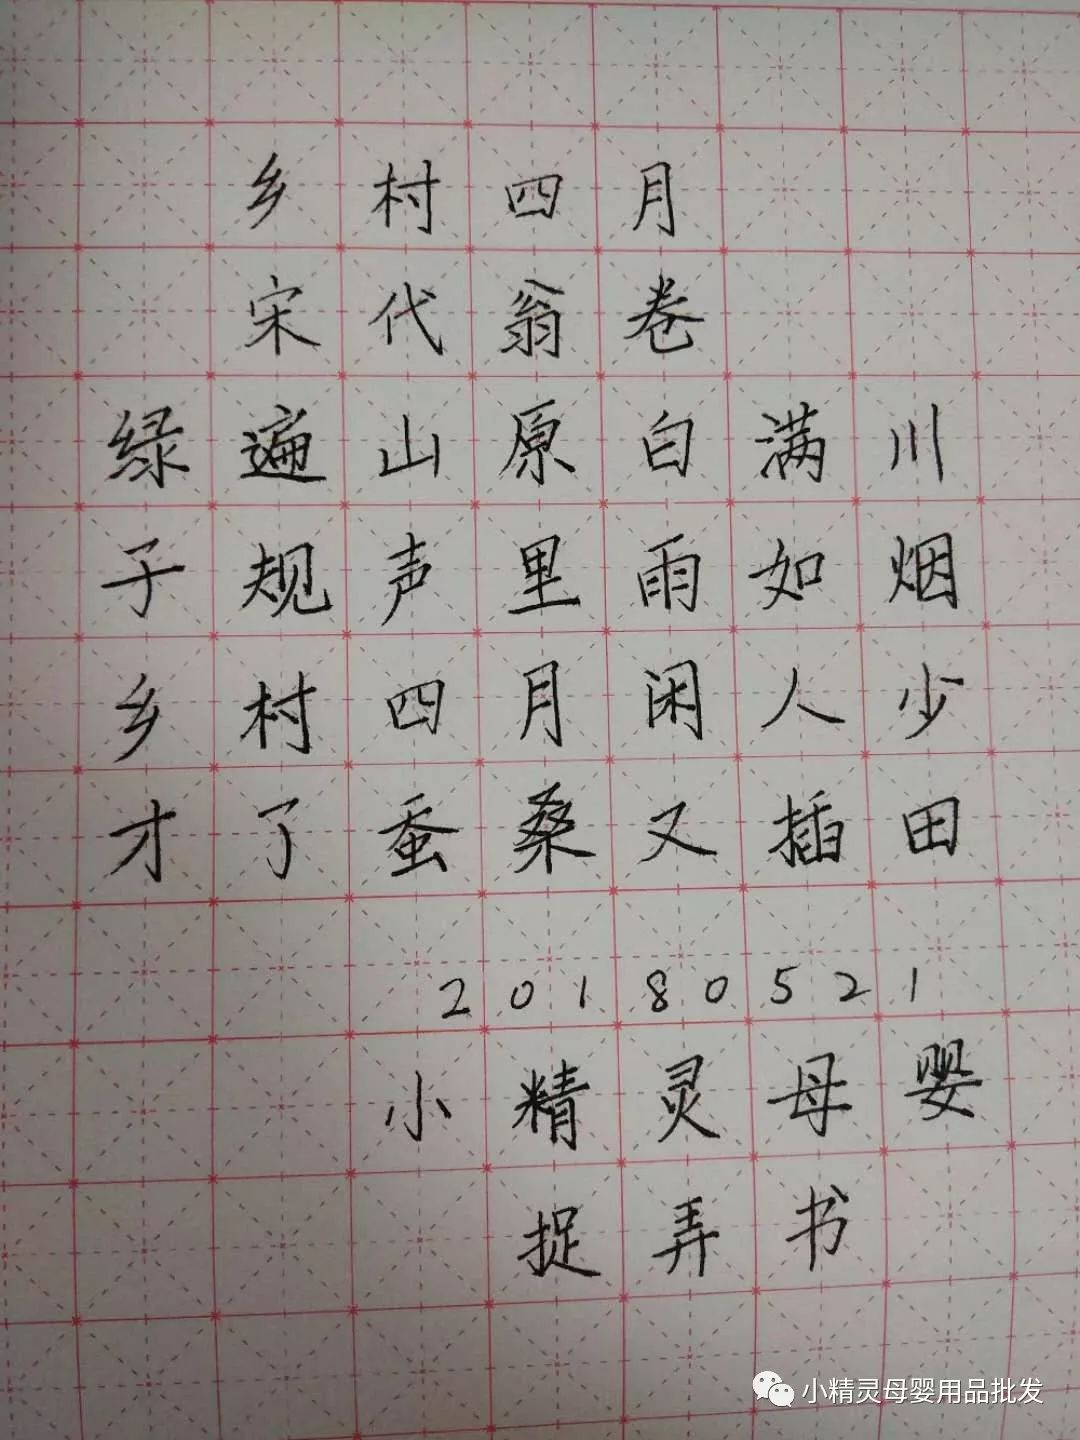 乡村四月
宋代翁卷
绿遍山原白满川
子规声里雨如烟
乡村四月闲人少
才了蚕桑又插田
20180521
小精灵母婴
捉弄书
小精灵母婴用品批发